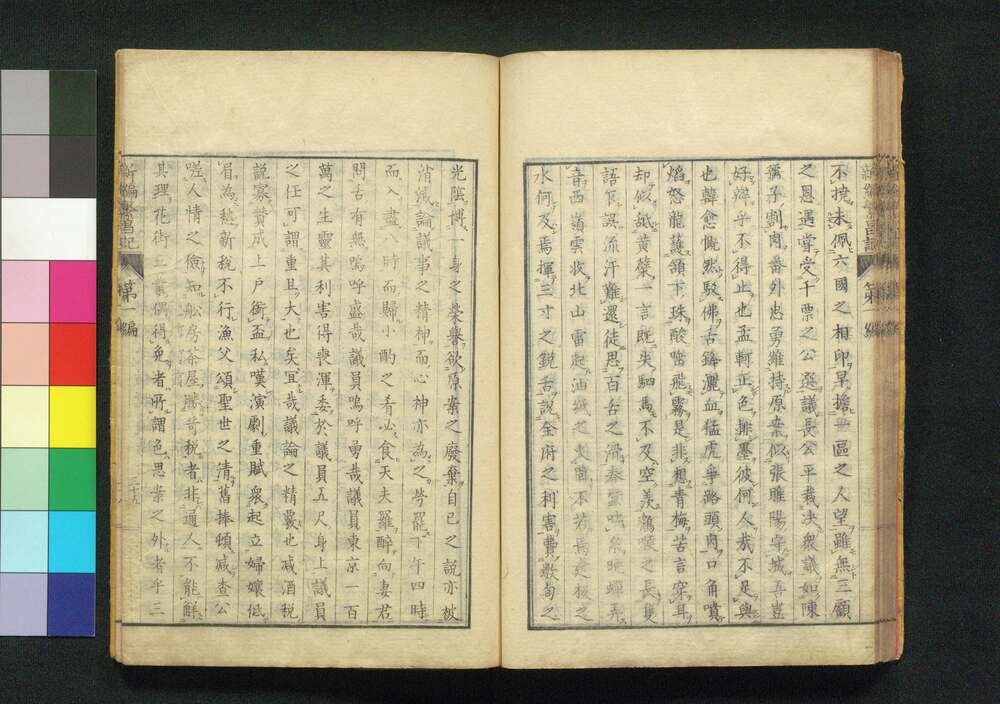 不撓未佩六國之相印早擔一區之人望雖無三顧
之恩遇嘗受千票之公選議長公平裁決衆議如陳
孺子割肉番外忠勇維持原案似張睢陽守城吾豈
好辨乎不得止也孟軻正色排墨彼何人哉不足與
也韓愈慨然駁佛舌鋒灑血猛虎爭路頭肉口角噴
焰怒龍護頷下珠酸嘗飛霧是非想青梅苦言穿耳
却似舐黃蘗一言既失駟馬不及空羨鶴喉之長隻
語 誤流汗難還徒思百舌之 秦 晚蟬弄
音西嶺雲收北山雷起油紙之 不若 之
水何及焉揮三寸之銳舌說全府之利害費數旬之
光陰博一身之榮譽欲原案之廢棄自已之說亦被
消滅論議事之精神而心神亦為之勞罷下午四時
而入 盡 時而歸小酌之肴必食天夫羅醉向妻君
問舌有無嗚呼盛哉議員嗚呼勇哉議員東京一百
萬之生靈其利害得喪渾委於議員五尺身上議員
之任可謂重且大也矣宜哉議論之精覈也減酒税
説家贊成上戸銜盃私嘆演劇重賦衆起立婦孃低
眉為愁新税不行漁父頌聖世之清舊捧頓減查公
嗟人情之儉知舩房茶屋 税者非通人不能解
其理花街 偶得免者所謂色思案之外者乎三
新編繁昌記 第一編 三十五